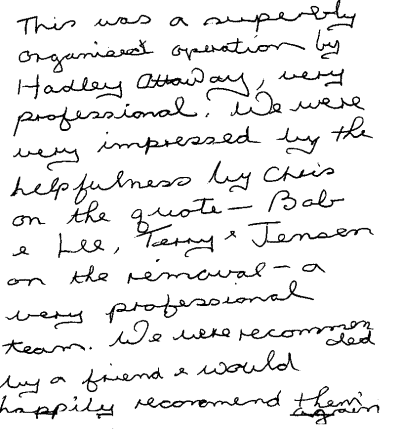 This was a superbly
organised operation by
Hadley Ottaway, very
professional. We were
very impressed by the
helpfulness by Chris
on the quote - Bob
& Lee, Terry & Jensen
on the removal - a
very professional
team. We were recommen
ded
by a friend & would
happily recommend them
again